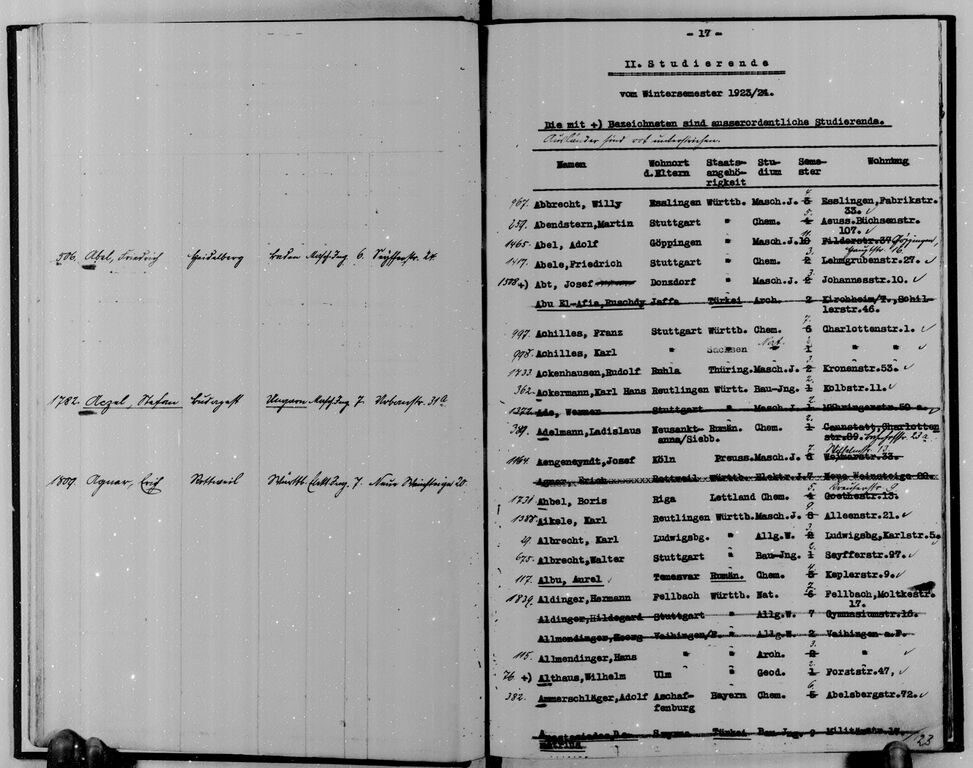 506. Abel, Friedrich Heidelberg Baden Masch.Ing. 6. 24
1782. Aczel, Stefan Budapest Ungarn Masch.Ing. 7. Urbanstr. 31a
1809. Agnar, Erich Rottweil Württ. Elektr.Ing. 7. Neue Weinsteige 20.
- 17 -
II. Studierende
vom Wintersemester 1923/24.
Die mit +) Bezeichneten sind ausserordentliche Studierende.
Ausländer sind rot unterstrichen.
Namen Wohnort Staats- Stu- Seme- Wohnung
d.Eltern angehö- dium ster
rigkeit
967. Abbrecht, Willy Esslingen Württb. Masch.J. 3 4. Esslingen,Fabrikstr.
33.
259. Abendstern,Martin Stuttgart " Chem. 4 5. Aeuss.Büchsenstr.
107.
1465. Abel, Adolf Göppingen " Masch.J. 10 11. Filderstr.37 Göppingen,
16.
1417. Abele,Friedrich Stuttgart " Chem. 2 3. Lehmgrubenstr.27.
1508 +) Abt, Josef Donzdorf " Masch.J. 2 3. Johannesstr.10.
Abu El-Afia,Ruschdy Jaffa Türkei Arch. 2 Kirchheim/T.,Schil-
lerstr.46.
997. Achilles, Franz Stuttgart Württb. Chem. 6 7. Charlottenstr.1.
998. Achilles, Karl " Sachsen Nat. 1 " "
1733 Ackenhausen,Rudolf Ruhla Thüring. Masch.J. 2 3. Kronenstr.53.
362. Ackermann,Karl Hans Reutlingen Württ. Bau-Jng. 1 2. Kolbstr.11.
1372. Ade, Werner Stuttgart " Masch.J. 1 2. Möhringerstr.50 a.
389. Adelmann,Ladislaus Neusankt- Rumän. Chem. 1 2. Cannstatt,Charlotten
anna/Siebb. str.89. 23a
1164. Aengeneyndt,Josef Köln Preuss. Masch.J. 6 7. Weimarstr.33. 13.
Agner, Erich Rottweil Württb. Elektr.J. 7 Neue Weinsteige 20.
1731. Ahbel, Boris Riga Lettland Chem. 4 5. Goethestr.13. 9.
1388. Aikele, Karl Reutlingen Württb. Masch.J. 8 9. Alleenstr.21.
29. Albrecht, Karl Ludwigsbg. " Allg.W. 2 3. Ludwigsbg,Karlstr.5.
675. Albrecht,Walter Stuttgart " Bau-Jng. 1 2. Seyfferstr.97.
117. Albu, Aurel Temesvar Rumän. Chem. 3 4. Keplerstr.9.
1839. Aldinger,Hermann Fellbach Württb. Nat. 6 Fellbach,Moltkestr.
17.
Aldinger,Hildegard Stuttgart " Allg.W. 7 Gymnasiumstr.16.
Allmendinger,Georg Vaihingen/F. " Allg.W. 2 Vaihingen a.F.
115. Allmendinger,Hans " " Arch. 2 3. " "
76 +) Althaus,Wilhelm Ulm " Geod. 1 2. Forststr.47,
382. Ammerschläger,Adolf Aschaf- Bayern Chem. 5 6. Abelsbergstr.72.
fenburg
Smyrna Türkei Bau-Jng. Militärstr.
23